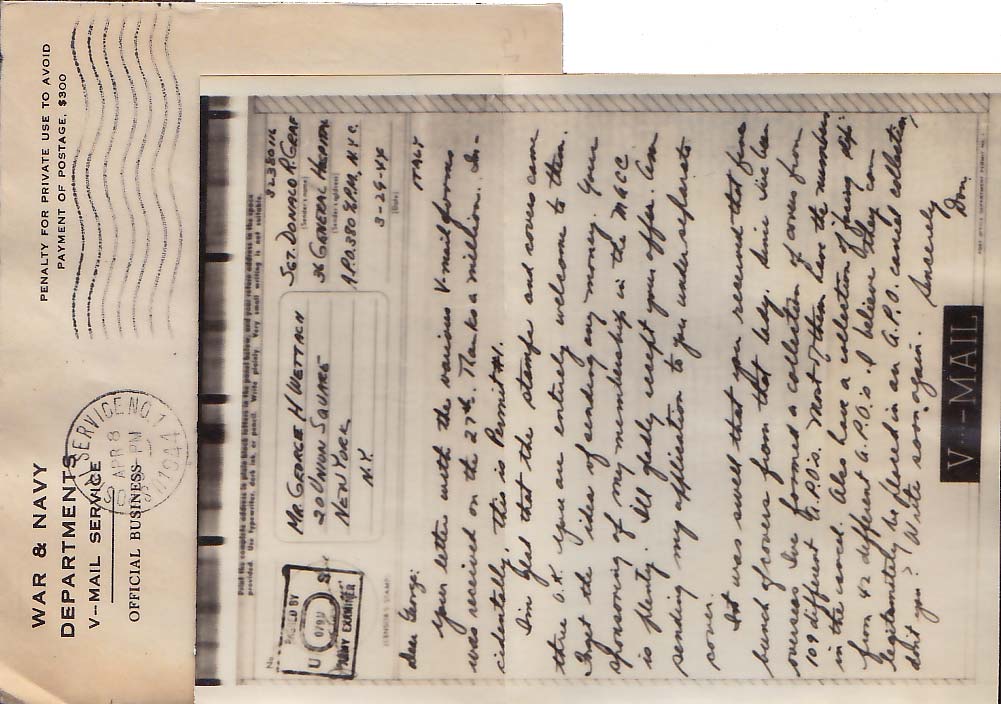 WAR & NAVY
DEPARTMENTS
V-MAIL SERVICE
OFFICIAL BUSINESS
PENALTY FOR PRIVATE USE TO AVOID
PAYMENT OF POSTAGE, $300
SERVICE NO 1
APR 8
PM
1944
Print the complete address in plain block letters in the panel below, and your return address in the space
provided. Use typewriter, dark ink, or pencil. Write plainly. Very small writing is not suitable.
No.
PASSED BY
U S
0793
ARMY EXAMINER
(CENSOR'S STAMP)
MR. GEORGE H WETTACH
20 UNION SQUARE
NEW YORK
N.Y.
32380116
SGT. DONALD R. GRAF
(Sender's name)
36 GENERAL HOSPITAL
(Sender's address)
A.P.O. 380 % P.M. N.Y.C.
3-29-44
(Date)
ITALY
Dear George:
Your letter with the various V-mail forms
was received on the 27th. Thanks a million. In-
cidentally this is Permit #1.
Im glad that the stamps and covers came
thru O.K. You are entirely welcome to them.
Forget the idea of sending any money. Your
sponsoring of my membership in the MACC
is plenty. I'll gladly accept your offer. Am
sending my application to you under separate
cover.
It was swell that you received that fine
bunch of covers from that lady. Since I've been
overseas I've formed a collection of covers from
109 different A.P.O's. Most of them have the numbers
in the cancel. Also have a collection of
from 42 different A.P.O.'s. I believe they can
legitimately be placed in an A.P.O. cancel collection,
dont you? Write soon again.
Sincerely
Don.
V···-MAIL